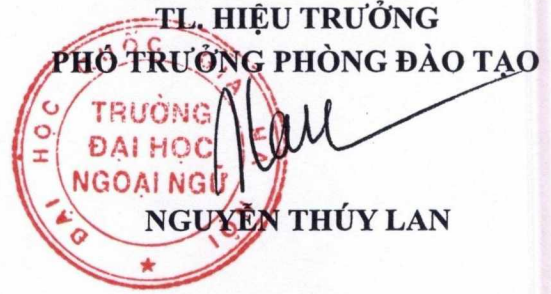 TL. HIỆU TRƯỞNG
PHÓ TRƯỞNG PHÒNG ĐÀO TẠO
ĐẠI HỌC QUỐC GIA HÀ NỘI
TRƯỜNG
ĐẠI HỌC
NGOẠI NGỮ
Lan
NGUYỄN THÚY LAN